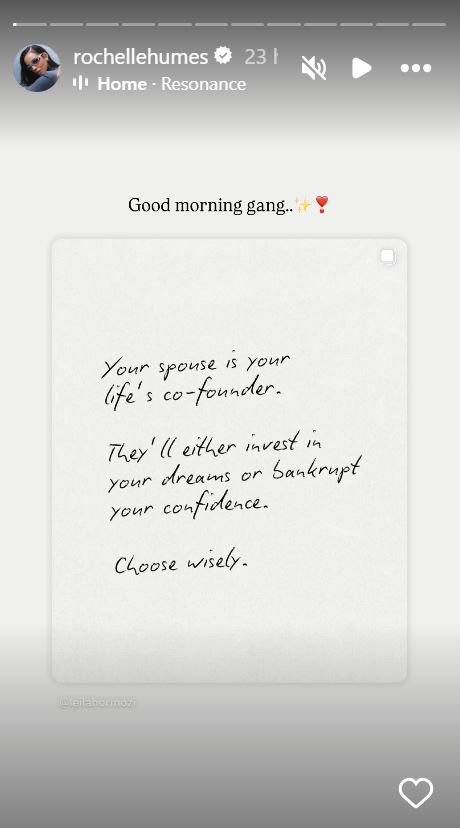 rochellehumes 23 h
Home · Resonance
Good morning gang..✨❣️
Your spouse is your
life's co-founder.
They'll either invest in
your dreams or bankrupt
your confidence.
Choose wisely.
@leilahormozi